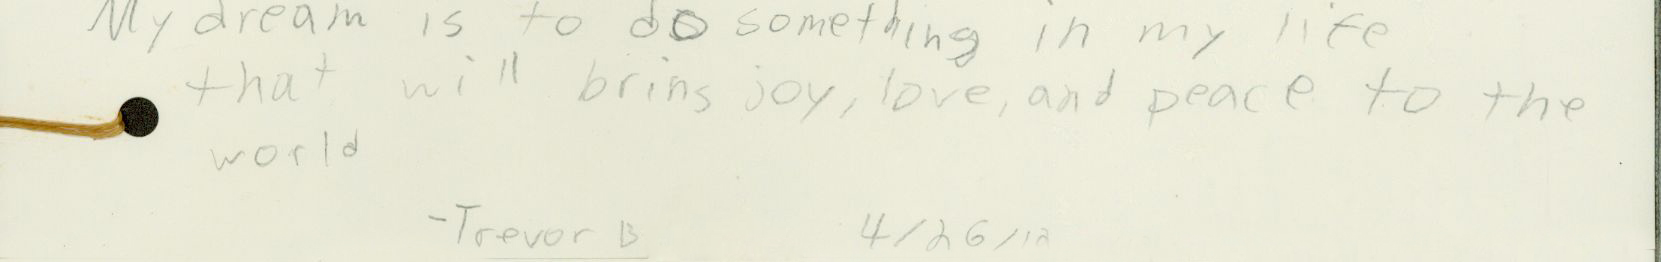 My dream is to do something in my life
that will bring joy, love, and peace to the
world
-Trevor B 4/26/12